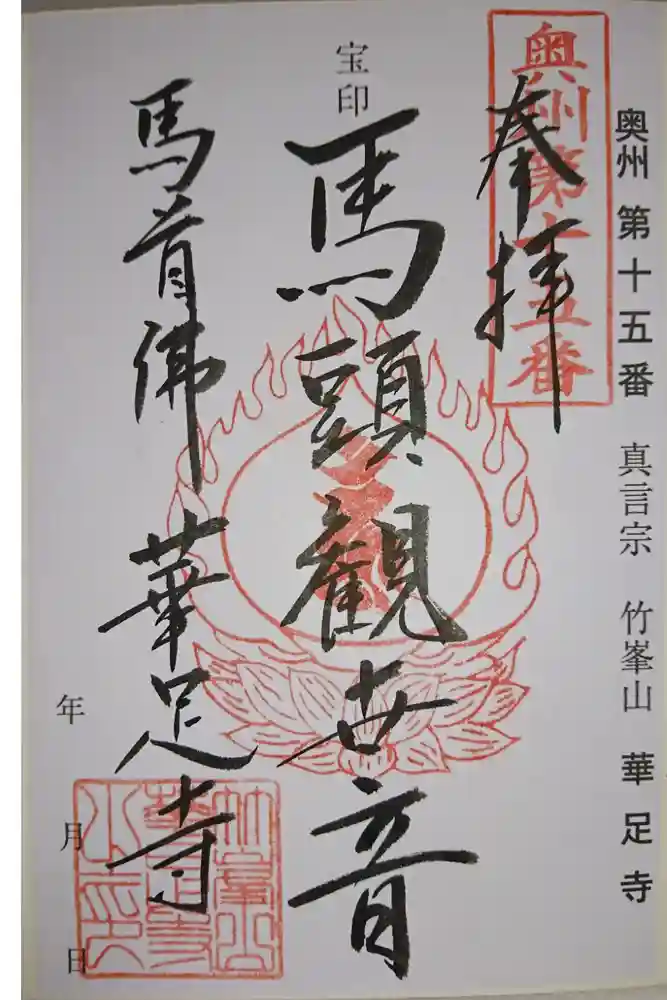 奥州 第十五番 真言宗 竹峯山 華足寺
奥州第十五番
奉拝
宝印
馬頭觀世音
馬首佛 華足寺
年 月 日